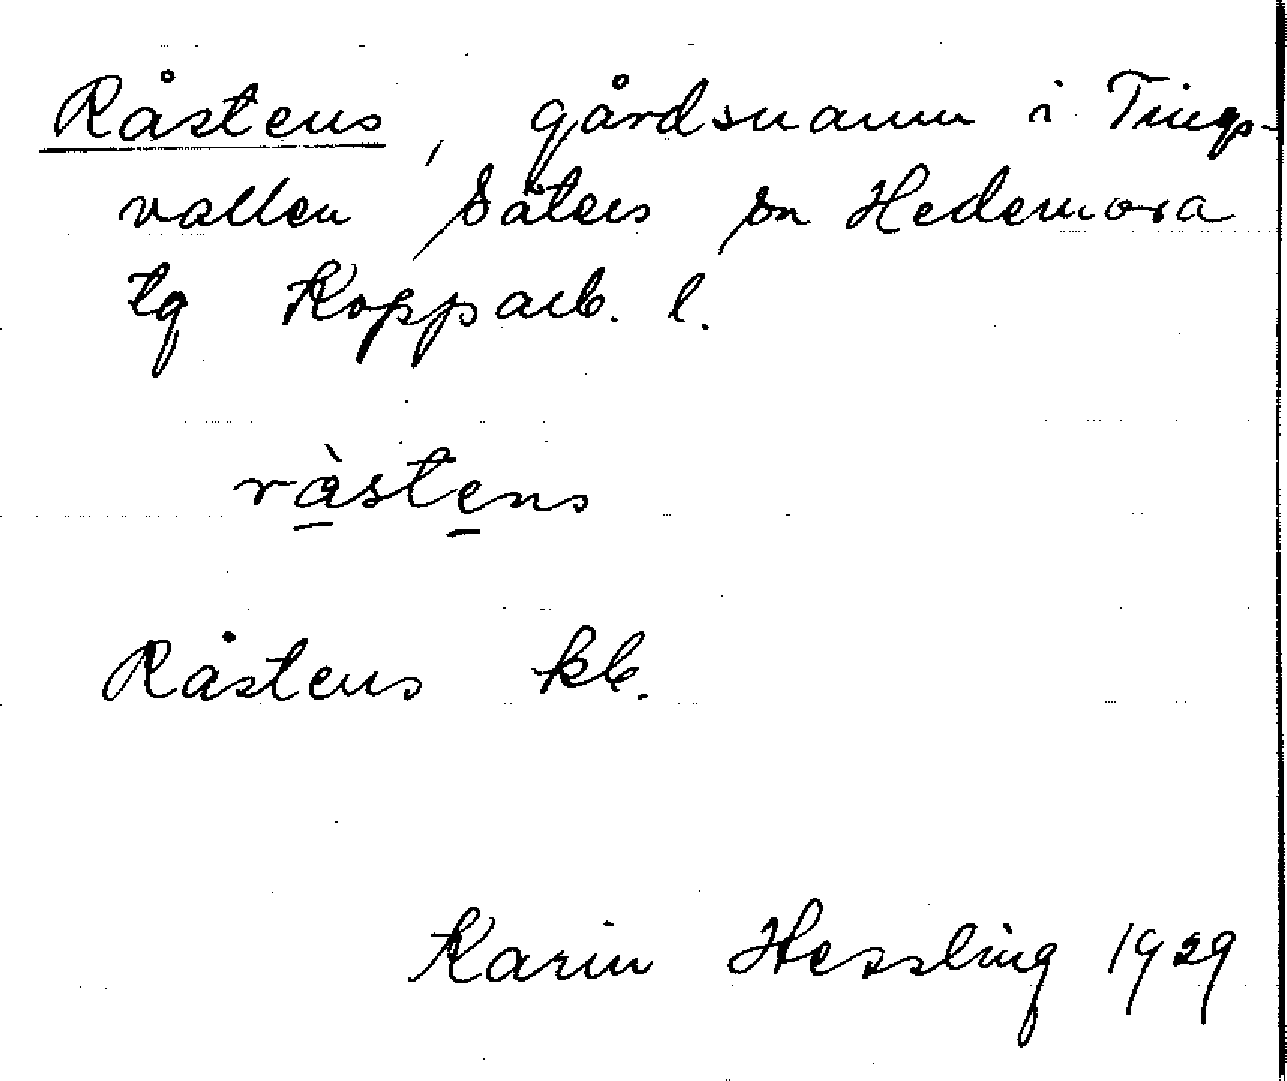 Råstens, gårdsnamn i Tings-
vallen Säters sn Hedemora
tg Kopparb. l.
ràstens
Råstens kb.
Karin Hessling 1929